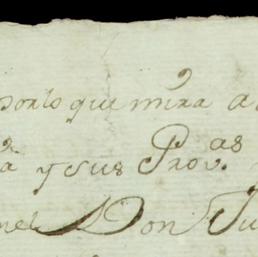 por lo que mira a
a y sus Prov.as
nel Don Ju